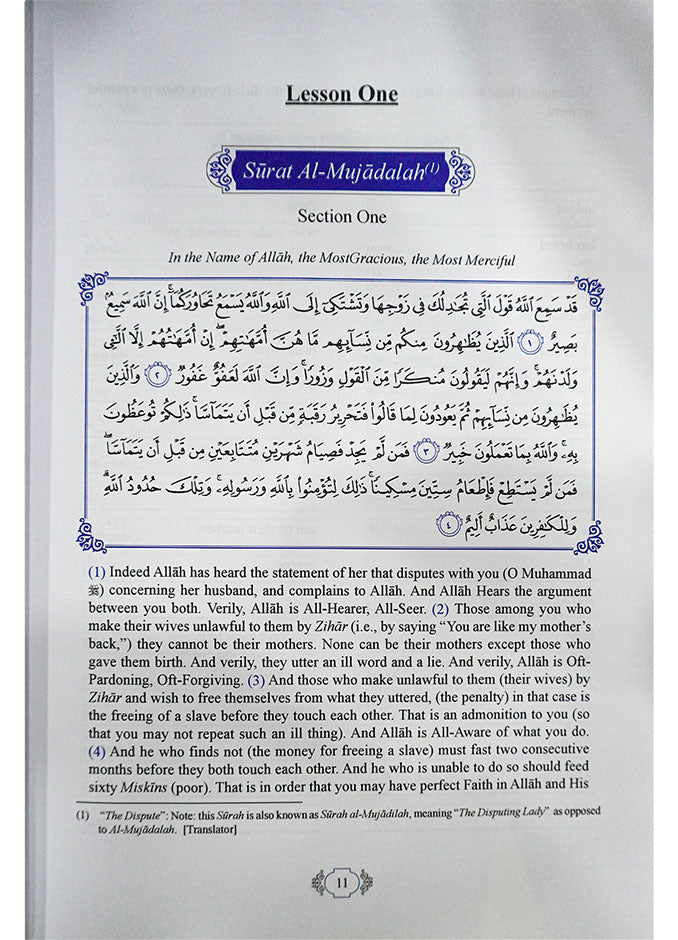 Lesson One
Sūrat Al-Mujādalah(1)
Section One
In the Name of Allāh, the MostGracious, the Most Merciful
قَدۡ سَمِعَ ٱللَّهُ قَوۡلَ ٱلَّتِي تُجَٰدِلُكَ فِي زَوۡجِهَا وَتَشۡتَكِيٓ إِلَى ٱللَّهِ وَٱللَّهُ يَسۡمَعُ تَحَاوُرَكُمَآۚ إِنَّ ٱللَّهَ سَمِيعُۢ
بَصِيرٌ ١ ٱلَّذِينَ يُظَٰهِرُونَ مِنكُم مِّن نِّسَآئِهِم مَّا هُنَّ أُمَّهَٰتِهِمۡۖ إِنۡ أُمَّهَٰتُهُمۡ إِلَّا ٱلَّٰٓـِٔي
وَلَدۡنَهُمۡۚ وَإِنَّهُمۡ لَيَقُولُونَ مُنكَرٗا مِّنَ ٱلۡقَوۡلِ وَزُورٗاۚ وَإِنَّ ٱللَّهَ لَعَفُوٌّ غَفُورٞ ٢ وَٱلَّذِينَ
يُظَٰهِرُونَ مِن نِّسَآئِهِمۡ ثُمَّ يَعُودُونَ لِمَا قَالُواْ فَتَحۡرِيرُ رَقَبَةٖ مِّن قَبۡلِ أَن يَتَمَآسَّاۚ ذَٰلِكُمۡ تُوعَظُونَ
بِهِۦۚ وَٱللَّهُ بِمَا تَعۡمَلُونَ خَبِيرٞ ٣ فَمَن لَّمۡ يَجِدۡ فَصِيَامُ شَهۡرَيۡنِ مُتَتَابِعَيۡنِ مِن قَبۡلِ أَن يَتَمَآسَّاۖ
فَمَن لَّمۡ يَسۡتَطِعۡ فَإِطۡعَامُ سِتِّينَ مِسۡكِينٗاۚ ذَٰلِكَ لِتُؤۡمِنُواْ بِٱللَّهِ وَرَسُولِهِۦۚ وَتِلۡكَ حُدُودُ ٱللَّهِۗ
وَلِلۡكَٰفِرِينَ عَذَابٌ أَلِيمٌ ٤
(1) Indeed Allāh has heard the statement of her that disputes with you (O Muhammad
ﷺ) concerning her husband, and complains to Allāh. And Allāh Hears the argument
between you both. Verily, Allāh is All-Hearer, All-Seer. (2) Those among you who
make their wives unlawful to them by Zihār (i.e., by saying “You are like my mother’s
back,”) they cannot be their mothers. None can be their mothers except those who
gave them birth. And verily, they utter an ill word and a lie. And verily, Allāh is Oft-
Pardoning, Oft-Forgiving. (3) And those who make unlawful to them (their wives) by
Zihār and wish to free themselves from what they uttered, (the penalty) in that case is
the freeing of a slave before they touch each other. That is an admonition to you (so
that you may not repeat such an ill thing). And Allāh is All-Aware of what you do.
(4) And he who finds not (the money for freeing a slave) must fast two consecutive
months before they both touch each other. And he who is unable to do so should feed
sixty Miskīns (poor). That is in order that you may have perfect Faith in Allāh and His
(1) “The Dispute”: Note: this Sūrah is also known as Sūrah al-Mujādilah, meaning “The Disputing Lady” as opposed
to Al-Mujādalah. [Translator]
11